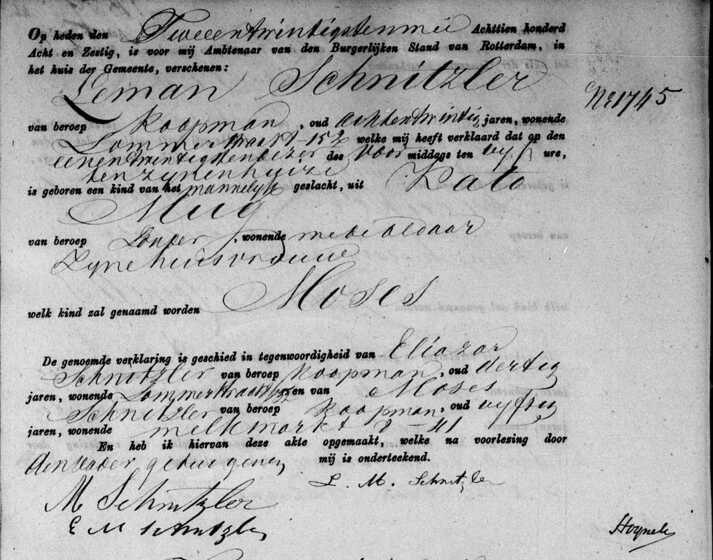 Op heden den Tweeentwintigsten mei Achttien honderd
Acht en Zestig, is voor mij Ambtenaar van den Burgerlijken Stand van Rotterdam, in
het huis der Gemeente, verschenen:
Leman Schnitzler
No 1745
van beroep Koopman, oud achtentwintig jaren, wonende
Lommerstraat welke mij heeft verklaard dat op den
eenentwintigsten dezer des voor middags ten vyf ure,
ten zynen huize
is geboren een kind van het mannelyk geslacht, uit Kato
van beroep Zonder, wonende mede aldaar
Zyne huisvrouw
welk kind zal genaamd worden Moses
De genoemde verklaring is geschied in tegenwoordigheid van Eliazar
Schnitzler van beroep Koopman, oud dertig
jaren, wonende Lommerstraat en van Moses
Schnitzler van beroep Koopman, oud vyftig
jaren, wonende melkmarkt 41
En heb ik hiervan deze akte opgemaakt, welke na voorlezing door
den vader, getuigen mij is onderteekend.
L. M. Schnitzler
M Schnitzler
E M Schnitzler